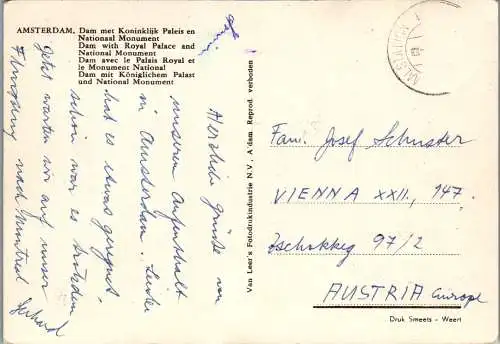 AMSTERDAM, Dam met Koninklijk Paleis en
Nationaal Monument
Dam with Royal Palace and
National Monument
Dam avec le Palais Royal et
le Monument National
Dam mit Königlichem Palast
und National Monument
Herzliche Grüße von
unserem Aufenthalt
in Amsterdam. Leider
hat es etwas geregnet,
schön war es trotzdem
Jetzt warten wir auf unser
Flugzeug nach Montreal
Gerhard
Van Leer's Fotodrukindustrie N.V., A'dam Reprod. verboden
Fam. Josef Schuster
VIENNA XXII, 147
Zschokkeg 97/2
AUSTRIA Europe
Druk Smeets - Weert